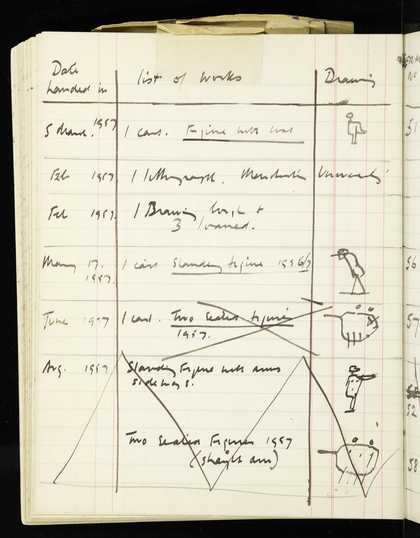 Date handed in
list of works
Drawing
5 March. 1957
1 cast. Figure with
51
Feb 1957.
1 lithograph. Manchester University
Feb 1957.
1 Drawing bought +
3 loaned.
May 17. 1957.
1 cast Standing figure 1956/7
56
June 1957
1 cast. Two Seated Figures
1957.
57
Aug. 1957
Standing Figure with arms
sideways.
52
Two Seated Figures 1957
(straight arm)
58